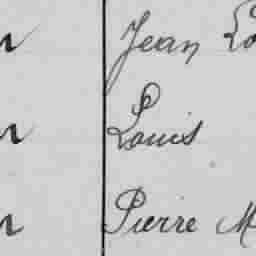 Jean
Louis
Pierre M